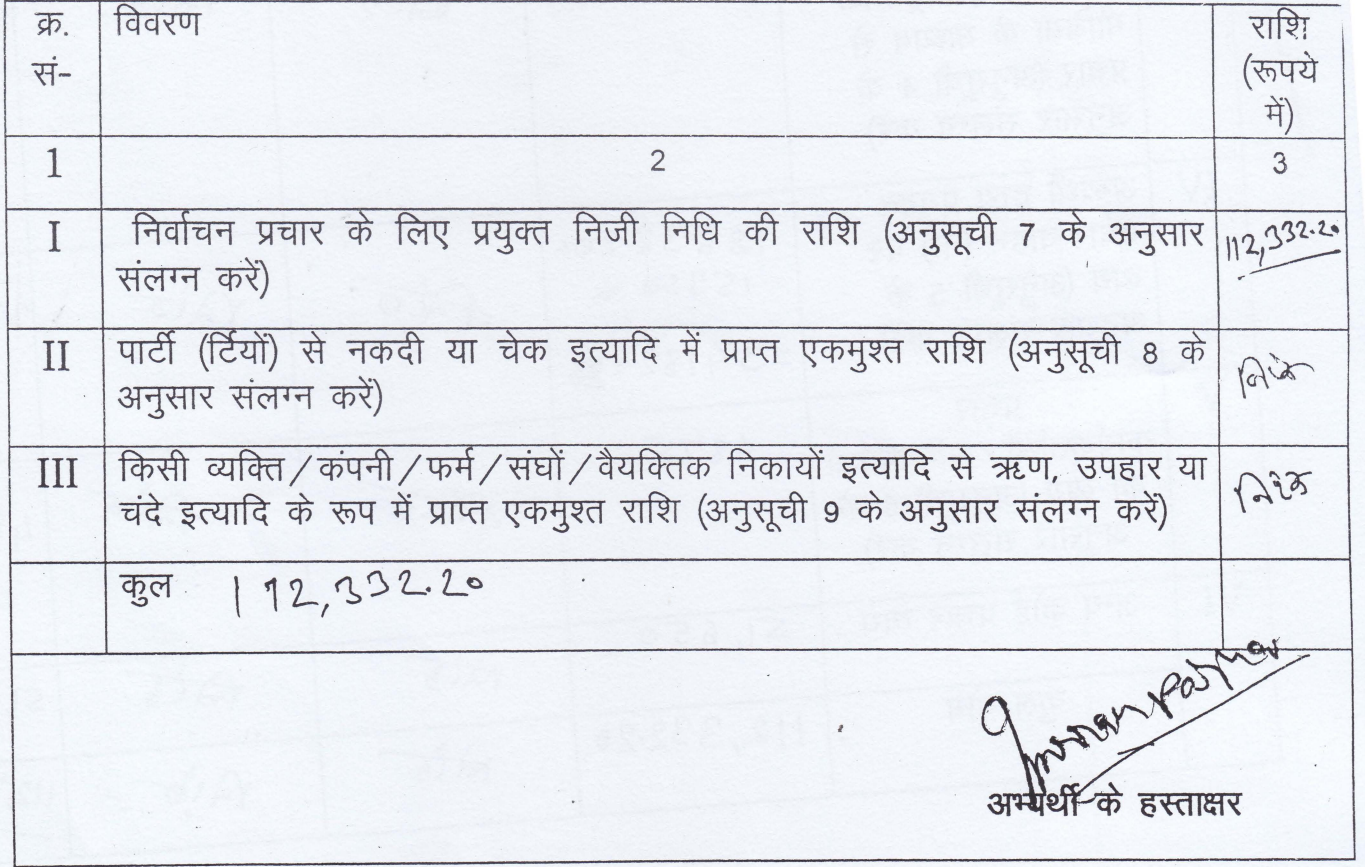 क्र. विवरण राशि
सं- (रूपये
में)
1 2 3
I निर्वाचन प्रचार के लिए प्रयुक्त निजी निधि की राशि (अनुसूची 7 के अनुसार 112,332.20
संलग्न करें)
II पार्टी (र्टियों) से नकदी या चेक इत्यादि में प्राप्त एकमुश्त राशि (अनुसूची 8 के
अनुसार संलग्न करें)
III किसी व्यक्ति/कंपनी/फर्म/संघों/वैयक्तिक निकायों इत्यादि से ऋण, उपहार या
चंदे इत्यादि के रूप में प्राप्त एकमुश्त राशि (अनुसूची 9 के अनुसार संलग्न करें)
कुल 112,332.20
अभ्यर्थी के हस्ताक्षर